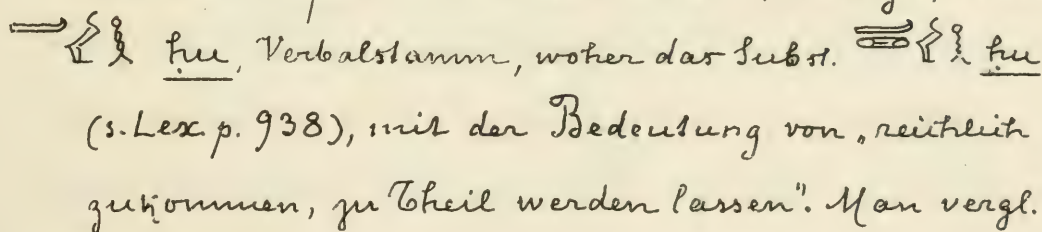 ḥu, Verbalstamm, woher das Subst. ḥu
(s. Lex. p. 938), mit der Bedeutung von „reichlich
zukommen, zu Theil werden lassen". Man vergl.